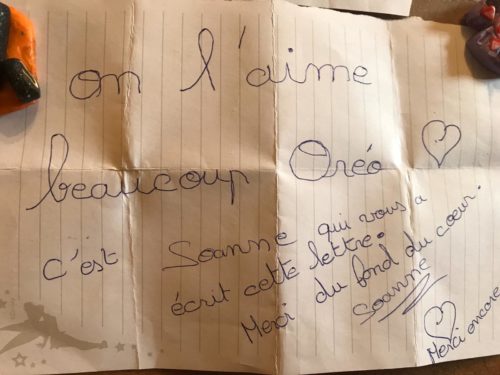 on l'aime
beaucoup Oréo
c'est Soanne qui vous a
écrit cette lettre.
Merci du fond du cœur.
Soanne
Merci encore